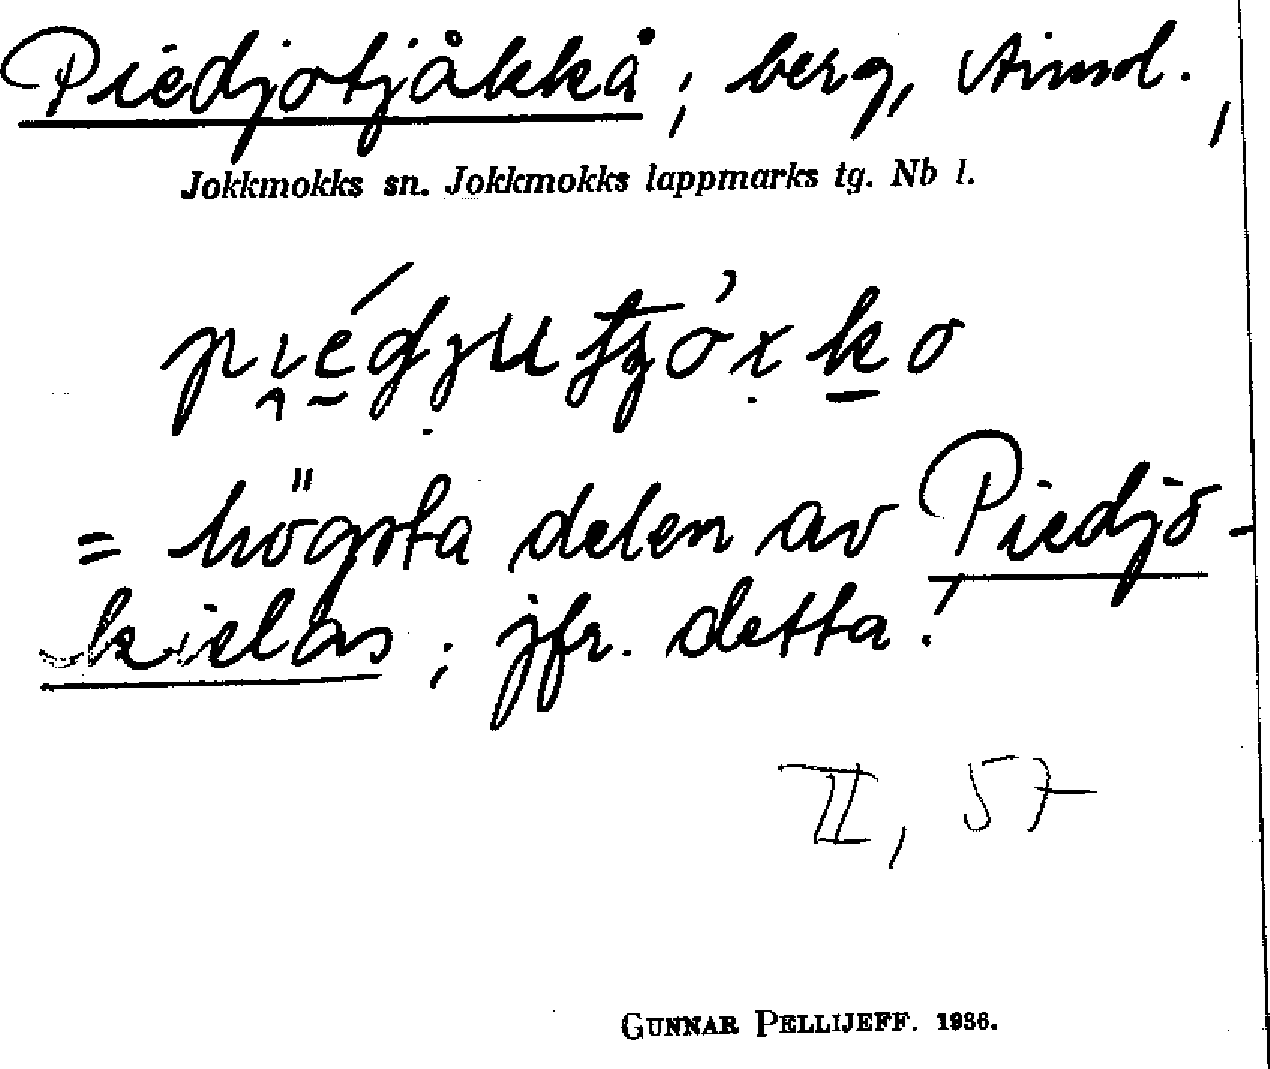 Piedjotjåkkå; berg,
Jokkmokks sn. Jokkmokks lappmarks tg. Nb l.
= högsta delen av Piedjo-
kielas; jfr. detta!
II, 57
GUNNAR PELLIJEFF. 1936.